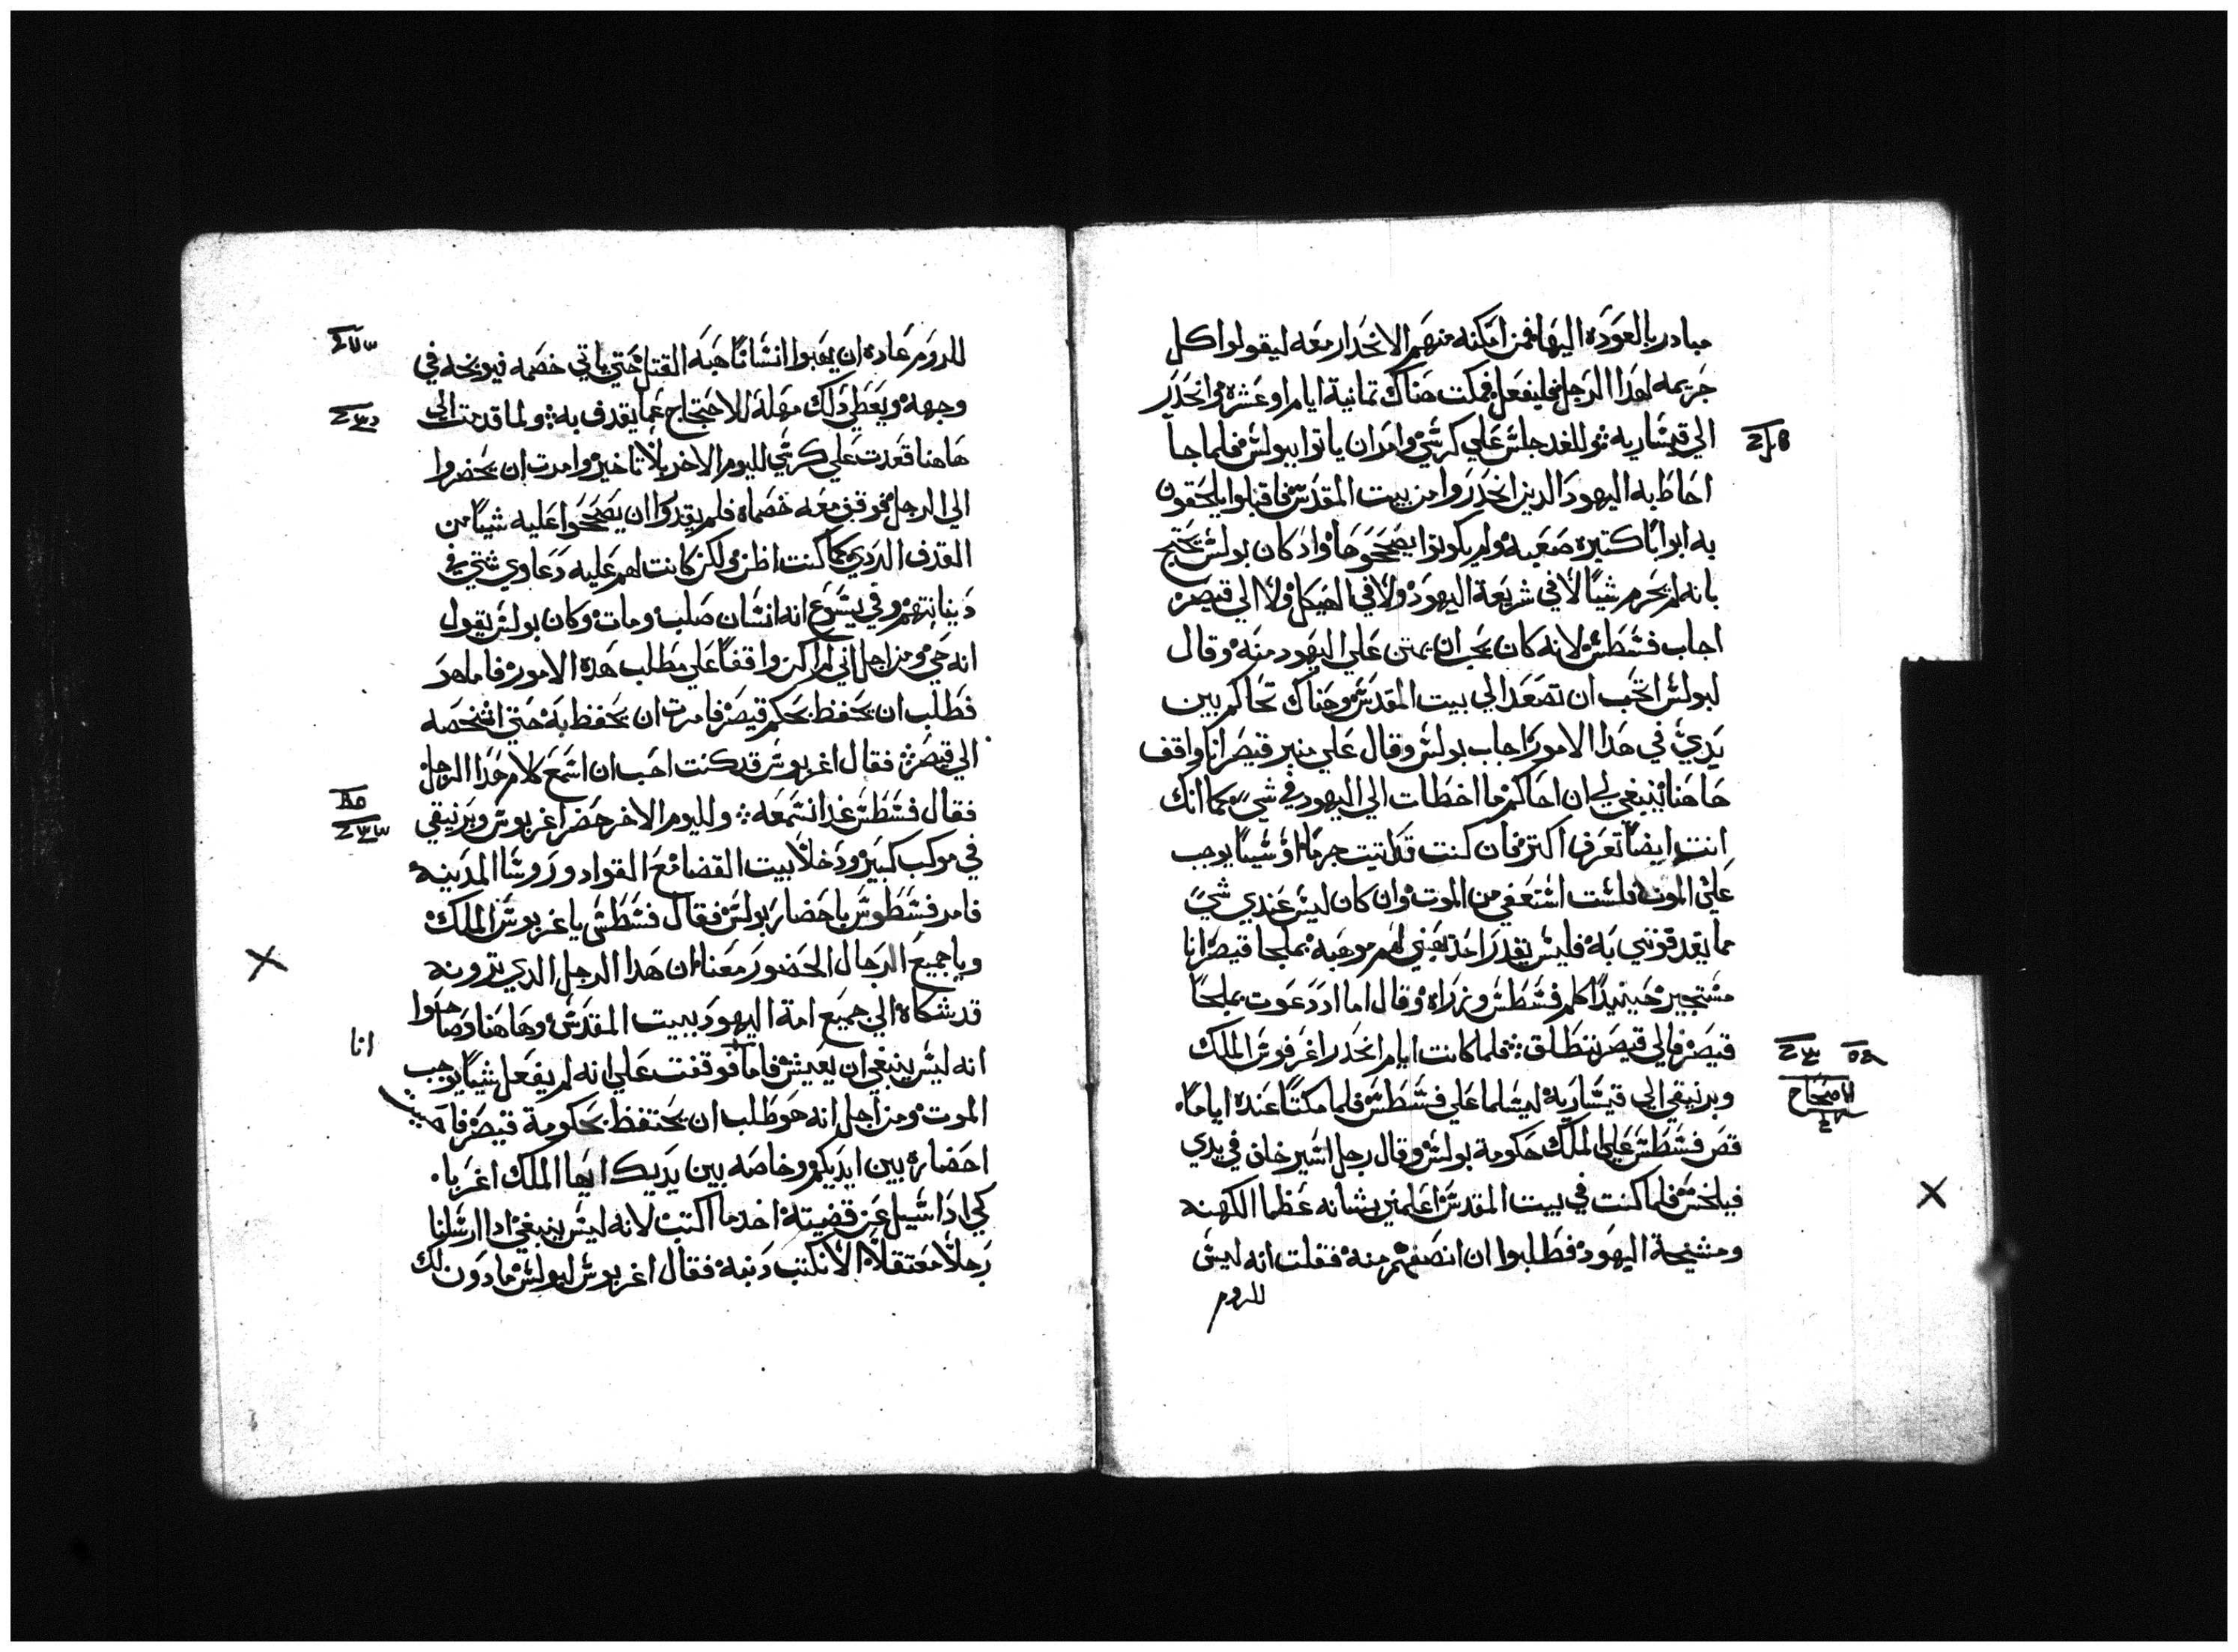 مبادر بالعوده اليها فمن امكنه منهم الانحدار معه ليقولوا كل
جريمه لهذا الرجل فليفعل فمكت هناك تمانية ايام او عشره وانحدر
الي قيساريه وللغد جلس علي كرسي وامر ان ياتوا ببولس فلما جا
احاط به اليهود الدين انحدروا من بيت المقدس فاقبلوا يلحقون
به ابوابا كتيره صعبه ولم يكونوا يصححوها واد كان بولس يحتج
بانه لم يجرم شيا لا في شريعة اليهود ولا في الهيكل ولا الي قيصر
اجاب فسطس لانه كان يحب ان يمتن علي اليهود منه وقال
لبولس اتحب ان تصعد الي بيت المقدس وهناك تحاكم بين
يدي في هدا الامور اجاب بولس وقال علي منبر قيصر انا واقف
هاهنا ينبغي لي ان احاكم ما اخطات الي اليهود في شي كما انك
انت ايضا تعرف اكتر فان كنت قد اتيت جرما او شيا يوجب
علي الموت فلست استعفي من الموت وان كان ليس عندي شي
مما يقدفونني به فليس يقدر احد يهبني لهم موهبه بملجا قيصر انا
مستجير حينيدا كلم فسطس وزراه وقال اما اد دعوت بملجا
قيصر فالي قيصر تنطلق فلما كانت ايام انحدر اغرفوس الملك
وبرنيقي الي قيساريه ليسلما علي فسطس فلما مكتا عنده اياما
قص فسطس علي الملك حكومة بولس وقال رجل اسير خلف في يدي
فيلخس فلما كنت في بيت المقدس اعلمني بشانه عظما الكهنه
ومشيخة اليهود فطلبوا ان انصفهم منه فقلت انه ليس
للروم
للروم عاده ان يهبوا انسانا هبه القتل حتي ياتي خصمه فيوبخه في
وجهه ويعطي دلك مهلة للاحتجاج عما يقدف به ولما قدمت الي
هاهنا قعدت علي كرسي لليوم الاخر بلا تاخير وامرت ان يحضروا
الي الرجل فوقف معه خصماه فلم يقدروا ان يصححوا عليه شيا من
القدف الردي كما كنت اظن ولكن كانت لهم عليه دعاوي شتي في
ديانتهم وفي يسوع انه انسان صلب ومات وكان بولس يقول
انه حي ومن اجل اني لم اكن واقفا علي مطلب هده الامور فاما هو
فطلب ان يحفظ بحكم قيصر فامرت ان يحفظ به حتي اشخصه
الي قيصر فقال اغربوس قد كنت احب ان اسمع كلام هدا الرجل
فقال فسطس غدا تسمعه ولليوم الاخر حضر اغربوس وبرنيقي
في موكب كبير ودخلا بيت القضا مع القواد وروسا المدينه
فامر فسطوس باحضار بولس فقال فسطس يا غربوس الملك
ويا جميع الرجال الحضور معنا ان هدا الرجل الدي ترونه
قد شكاه الي جميع امة اليهود ببيت المقدس وهاهنا وصاحوا
انه ليس ينبغي ان يعيش فاما فوقفت علي انه لم يفعل شيا يوجب
انا
الموت ومن اجل انه هو طلب ان يحتفظ بحكومة قيصر
احضاره بين ايديكم وخاصه بين يديك ايها الملك اغربا
كي ادا سيل عن قضيته اخد ما اكتب لانه ليس ينبغي ادا ارسلنا
رجلا معتقلا الا نكتب دنبه فقال اغربوس لبولس مادون لك